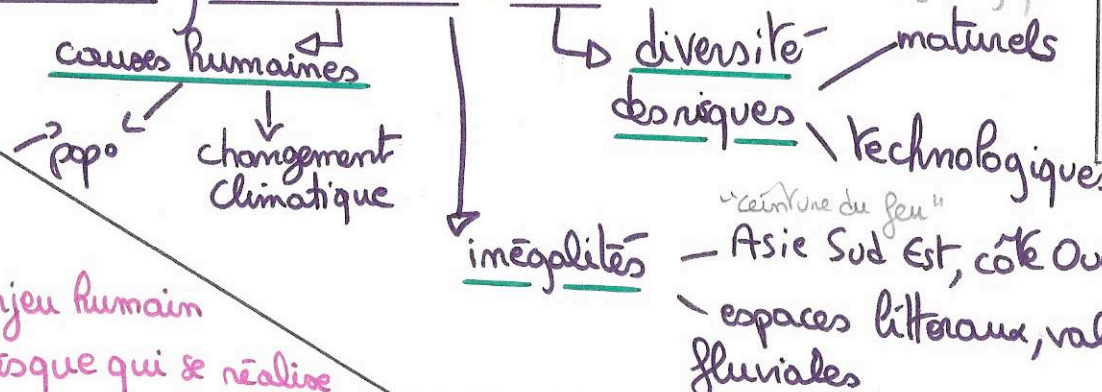 causes humaines
popº
changement
climatique
diversité
des risques
naturels
technologiques
inégalités
"ceinture du feu"
Asie Sud Est, côte Ou
espaces littoraux, val
fluviales
njeu humain
isque qui se réalise